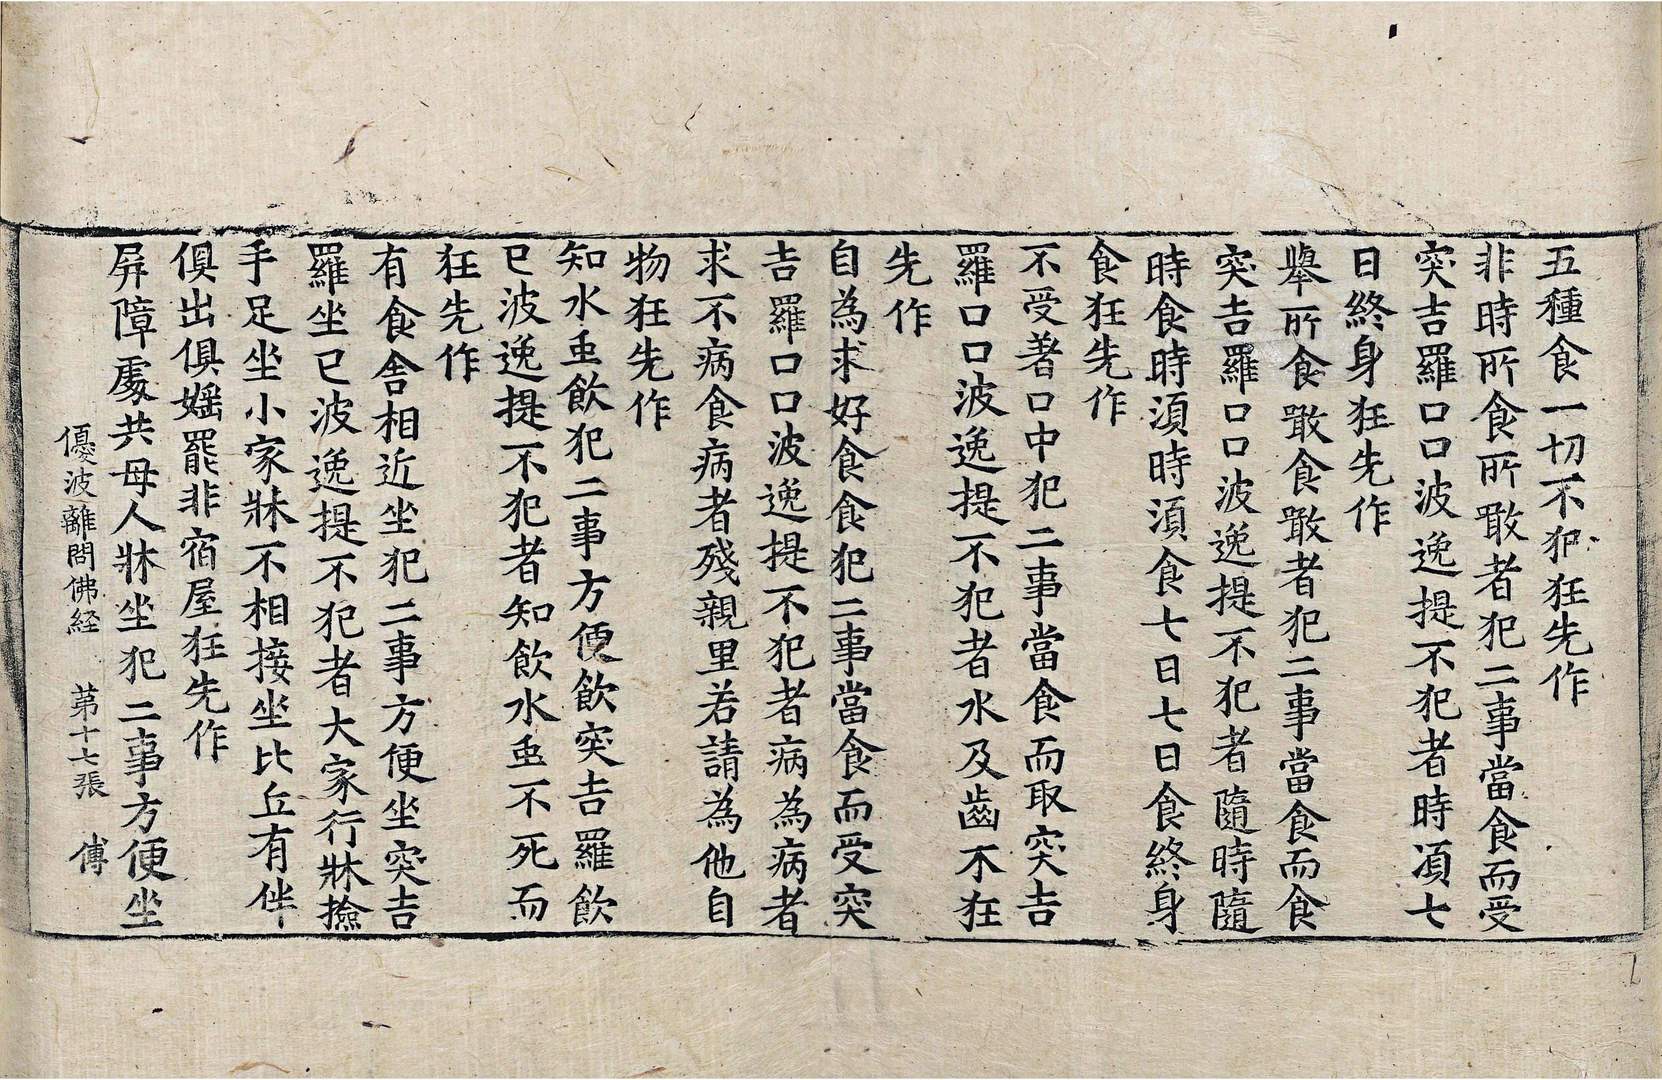 五種食一切不犯狂先作
非時所食所噉者犯二事當食而受
突吉羅口口波逸提不犯者時湏七
日終身狂先作
舉所食噉食噉者犯二事當食而食
突吉羅口口波逸提不犯者隨時隨
時食時湏時湏食七日七日食終身
食狂先作
不受著口中犯二事當食而取突吉
羅口口波逸提不犯者水及齒木狂
先作
自為求好食食犯二事當食而受突
吉羅口口波逸提不犯者病為病者
求不病食病者殘親里若請為他自
物狂先作
知水虫飲犯二事方便飲突吉羅飲
已波逸提不犯者知飲水虫不死而
狂先作
有食舍相近坐犯二事方便坐突吉
羅坐已波逸提不犯者大家行牀撿
手足坐小家牀不相接坐比丘有伴
俱出俱婬罷非宿屋狂先作
屏障處共母人牀坐犯二事方便坐
優波離問佛経 苐十七張 傅